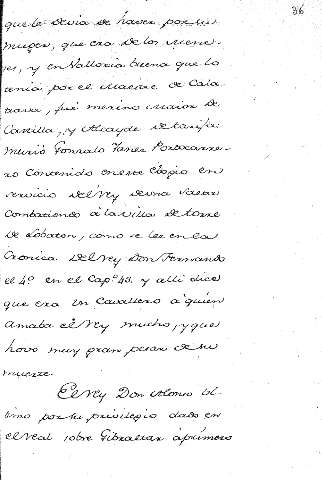 86
que le devia de haver por su
muger, que era de los Mene-
ses, y en Valloria buena que lo
tenia por el Maestre de Cala-
trava, fué merino maior de
Castilla, y Alcayde de tarifa.
Murió Gonzalo Yanez Portocarre-
ro Contenido en este Elogio en
servicio del Rey de una Saeta
Combatiendo à la villa de torre
de Lobaton, como se lee en la
Cronica del Rey Don Fernando
el 4º en el Capº 45. y alli dice
que era un Cavallero a quien
Amaba el Rey mucho, y que
hovo muy gran pesar de su
muerte.
El Rey Don Alonso Ul-
timo por su privilegio dado en
el Real sobre Gibraltar à primero